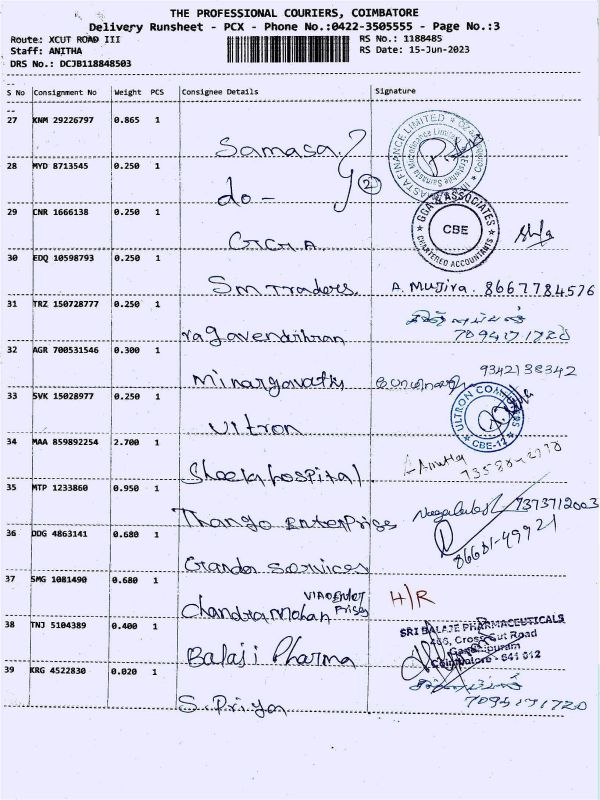 THE PROFESSIONAL COURIERS, COIMBATORE
Delivery Runsheet - PCX - Phone No.:0422-3505555 - Page No.:3
Route: XCUT ROAD III
RS No.: 1188485
Staff: ANITHA
RS Date: 15-Jun-2023
DRS No.: DCJB118848503
S No Consignment No Weight PCS Consignee Details Signature
27 KNM 29226797 0.865 1
Samasa
28 MYD 8713545 0.250 1
do -
2
29 CNR 1666138 0.250 1
GGA & ASSOCIATES
CBE
CHARTERED ACCOUNTANTS
G.G.A.
30 EDQ 10598793 0.250 1
Sm Traders. A. Mujira. 8667784576
31 TRZ 150728777 0.250 1
ragavendhran 7094171720
32 AGR 700531546 0.300 1
9342138342
33 SVK 15028977 0.250 1
Ultron
ULTRON COMPUTERS
CBE-12
34 MAA 859892254 2.700 1
Sheela hospital
Anitha
35 MTP 1233860 0.950 1
Thango Enterprises 7373712003
36 DDG 4863141 0.680 1
86681-49921
services
37 SMG 1081490 0.680 1
Chandramohan H/R
38 TNJ 5104389 0.400 1
SRI BALAJE PHARMACEUTICALS
466, Cross Cut Road
Gandhipuram
Coimbatore - 641 012
Balaji Pharma
39 KRG 4522830 0.020 1
S. Priya 7094171720